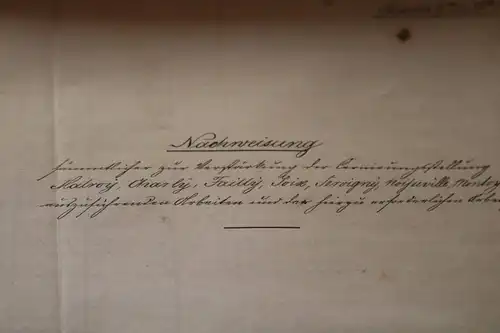 Nachweisung
sämmtlicher zur Verstärkung der Cernirungsstellung
Malroy, Charly, Failly, Poix, Servigny, Noisseville, Montoy
auszuführenden Arbeiten und der hierzu erforderlichen